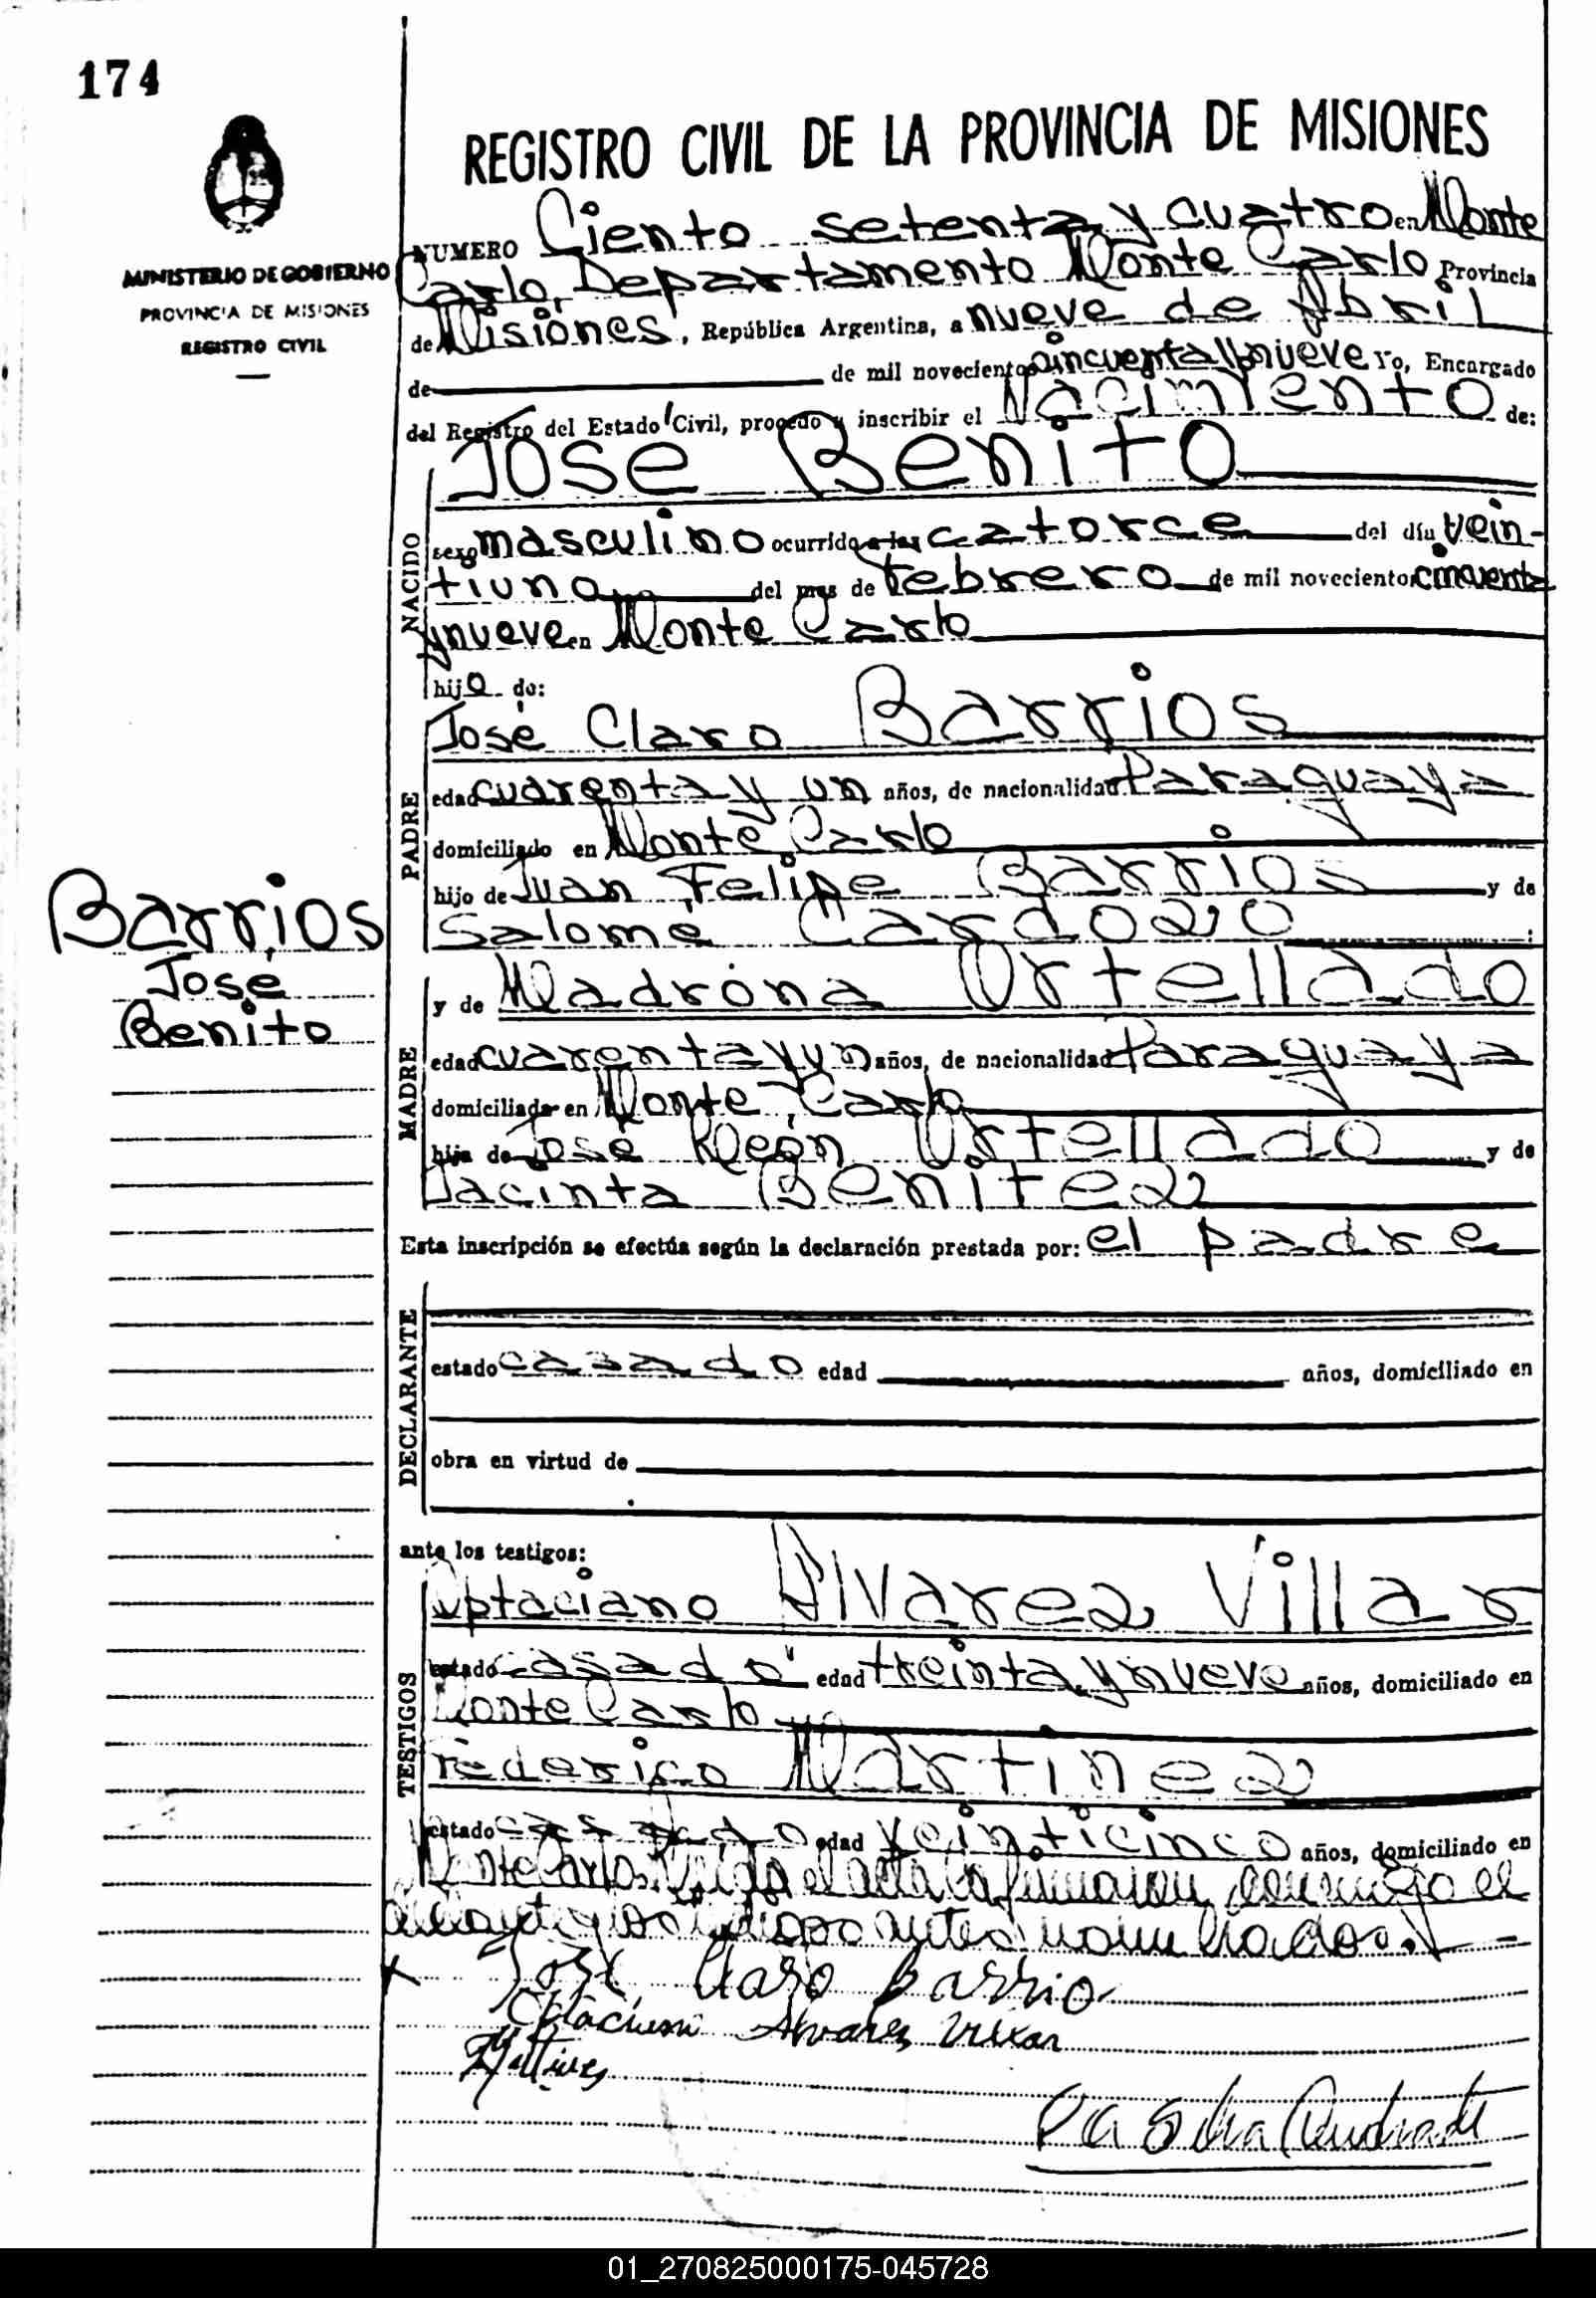 174
REGISTRO CIVIL DE LA PROVINCIA DE MISIONES
MINISTERIO DE GOBIERNO
PROVINCIA DE MISIONES
REGISTRO CIVIL
NUMERO Ciento setenta y cuatro en Monte
Carlo, Departamento Monte Carlo Provincia
de Misiones, República Argentina, a nueve de Abril
de de mil novecientos cincuenta y nueve Yo, Encargado
del Registro del Estado Civil, procedo a inscribir el Nacimiento de:
NACIDO
José Benito
sexo masculino ocurrido a las catorce del día vein-
tiuno del mes de febrero de mil novecientos cincuenta
y nueve en Monte Carlo
hijo de:
PADRE
José Claro Barrios
edad cuarenta y un años, de nacionalidad Paraguaya
domiciliado en Monte Carlo
hijo de Juan Felipe Barrios y de
Salomé Cardozo
Barrios
José
Benito
MADRE
y de Madrona Ortellado
edad cuarenta y un años, de nacionalidad Paraguaya
domiciliada en Monte Carlo
hija de José León Ortellado y de
Jacinta Benitez
Esta inscripción se efectúa según la declaración prestada por: el padre
DECLARANTE
estado casado edad años, domiciliado en
obra en virtud de
ante los testigos:
TESTIGOS
Optaciano Alvarez Villar
estado casado edad treinta y nueve años, domiciliado en
Monte Carlo y
Federico Martinez
estado casado edad veinticinco años, domiciliado en
Monte Carlo. Leída el acta la firmaron conmigo el
antes nombrados.
José Claro Barrio
Alvarez Villar
01_270825000175-045728